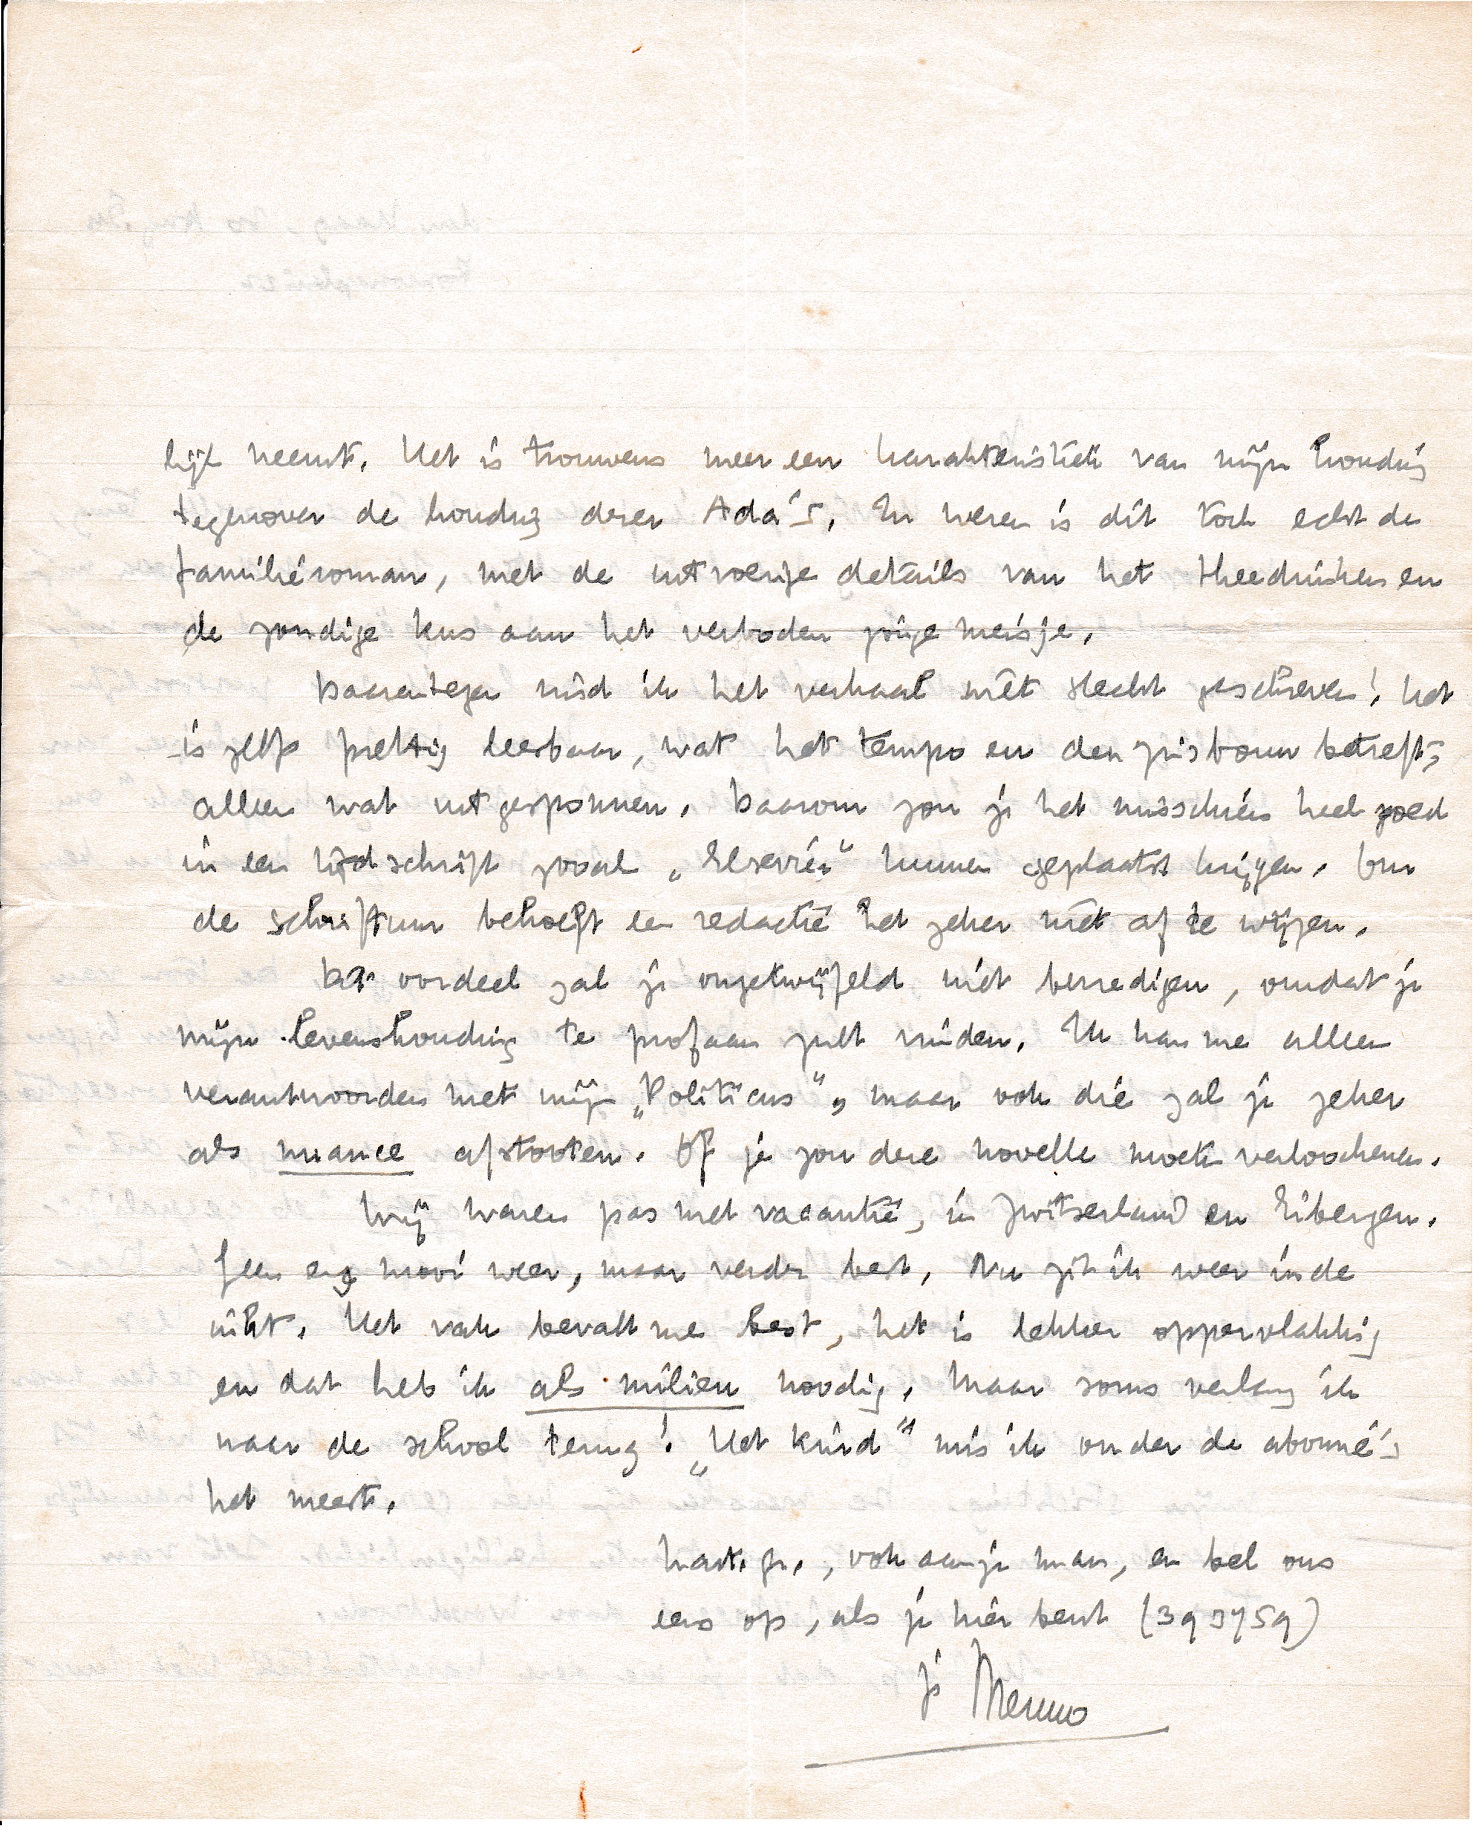 lijk neemt. Het is trouwens meer een karakteristiek van mijn houding
tegenover de houding dezer Ada's. En wezen is dit toch echt de
familieroman, met de uitvoerige details van het theedrinken en
de zondige kus aan het verboden jonge meisje.
Daarentegen vind ik het verhaal niet slecht geschreven! het
is zelfs prettig leesbaar, wat het tempo en den zinsbouw betreft;
alleen wat uitgesponnen. Daarom zou je het misschien heel goed
in een tijdschrift zooals „Elsevier" kunnen geplaatst krijgen. Om
de schriftuur behoeft een redactie het zeker niet af te wijzen.
Dit oordeel zal je ongetwijfeld niet bevredigen, omdat je
mijn levenshouding te profaan zult vinden. Ik kan me alleen
verantwoorden met mijn „Politicus", maar ook die zal je zeker
als nuance afstooten. Of je zou deze novelle moeten verloochenen.
Wij waren pas met vacantie, in Zwitserland en Eibergen.
Geen erg mooi weer, maar verder best. Nu zit ik weer in de
inkt. Het vak bevalt me best, het is lekker oppervlakkig
en dat heb ik als milieu noodig. Maar soms verlang ik
naar de school terug! „Het kind" mis ik onder de abonné's
het meest.
Hart. gr., ook aan je man, en bel ons
eens op, als je hier bent (393759)
je Menno